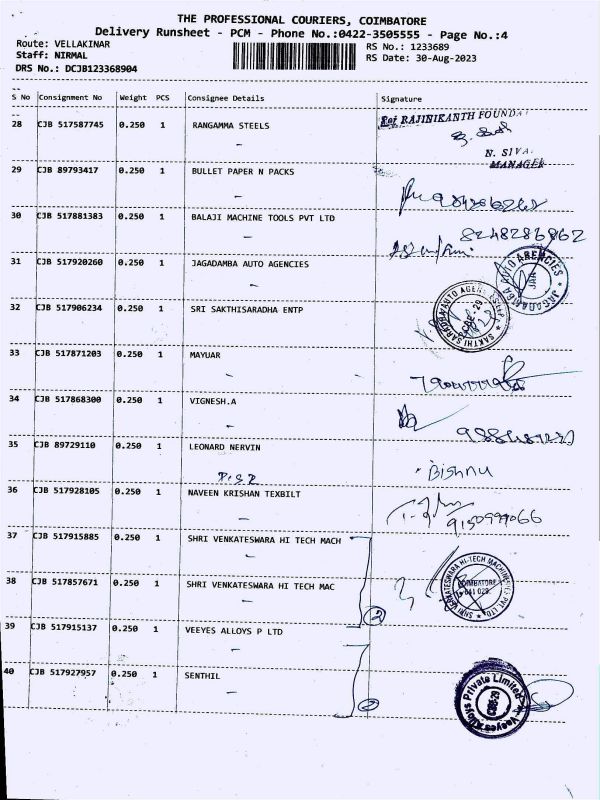 THE PROFESSIONAL COURIERS, COIMBATORE
Delivery Runsheet - PCM - Phone No.:0422-3505555 - Page No.:4
Route: VELLAKINAR
RS No.: 1233689
Staff: NIRMAL
RS Date: 30-Aug-2023
DRS No.: DCJB123368904
S No Consignment No Weight PCS Consignee Details Signature
28 CJB 517587745 0.250 1 RANGAMMA STEELS
RAJINIKANTH FOUNDA
N. SIVA
MANAGER
29 CJB 89793417 0.250 1 BULLET PAPER N PACKS
30 CJB 517881383 0.250 1 BALAJI MACHINE TOOLS PVT LTD
8248286862
31 CJB 517920260 0.250 1 JAGADAMBA AUTO AGENCIES
32 CJB 517906234 0.250 1 SRI SAKTHISARADHA ENTP
33 CJB 517871203 0.250 1 MAYUAR
34 CJB 517868300 0.250 1 VIGNESH.A
35 CJB 89729110 0.250 1 LEONARD NERVIN
Bishnu
36 CJB 517928105 0.250 1 NAVEEN KRISHAN TEXBILT
37 CJB 517915885 0.250 1 SHRI VENKATESWARA HI TECH MACH
38 CJB 517857671 0.250 1 SHRI VENKATESWARA HI TECH MAC
COIMBATORE
2
39 CJB 517915137 0.250 1 VEEYES ALLOYS P LTD
40 CJB 517927957 0.250 1 SENTHIL
Veeyes Alloys Private Limited